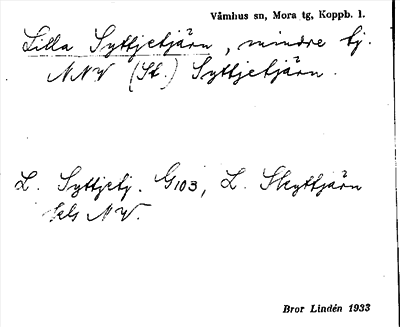 Våmhus sn, Mora tg, Koppb. l.
Lilla Syttjetjärn, mindre tj.
NNV (St.) Syttjetjärn.
L. Syttjetj. G103, L. Skyttjärn
kls NV.
Bror Lindén 1933